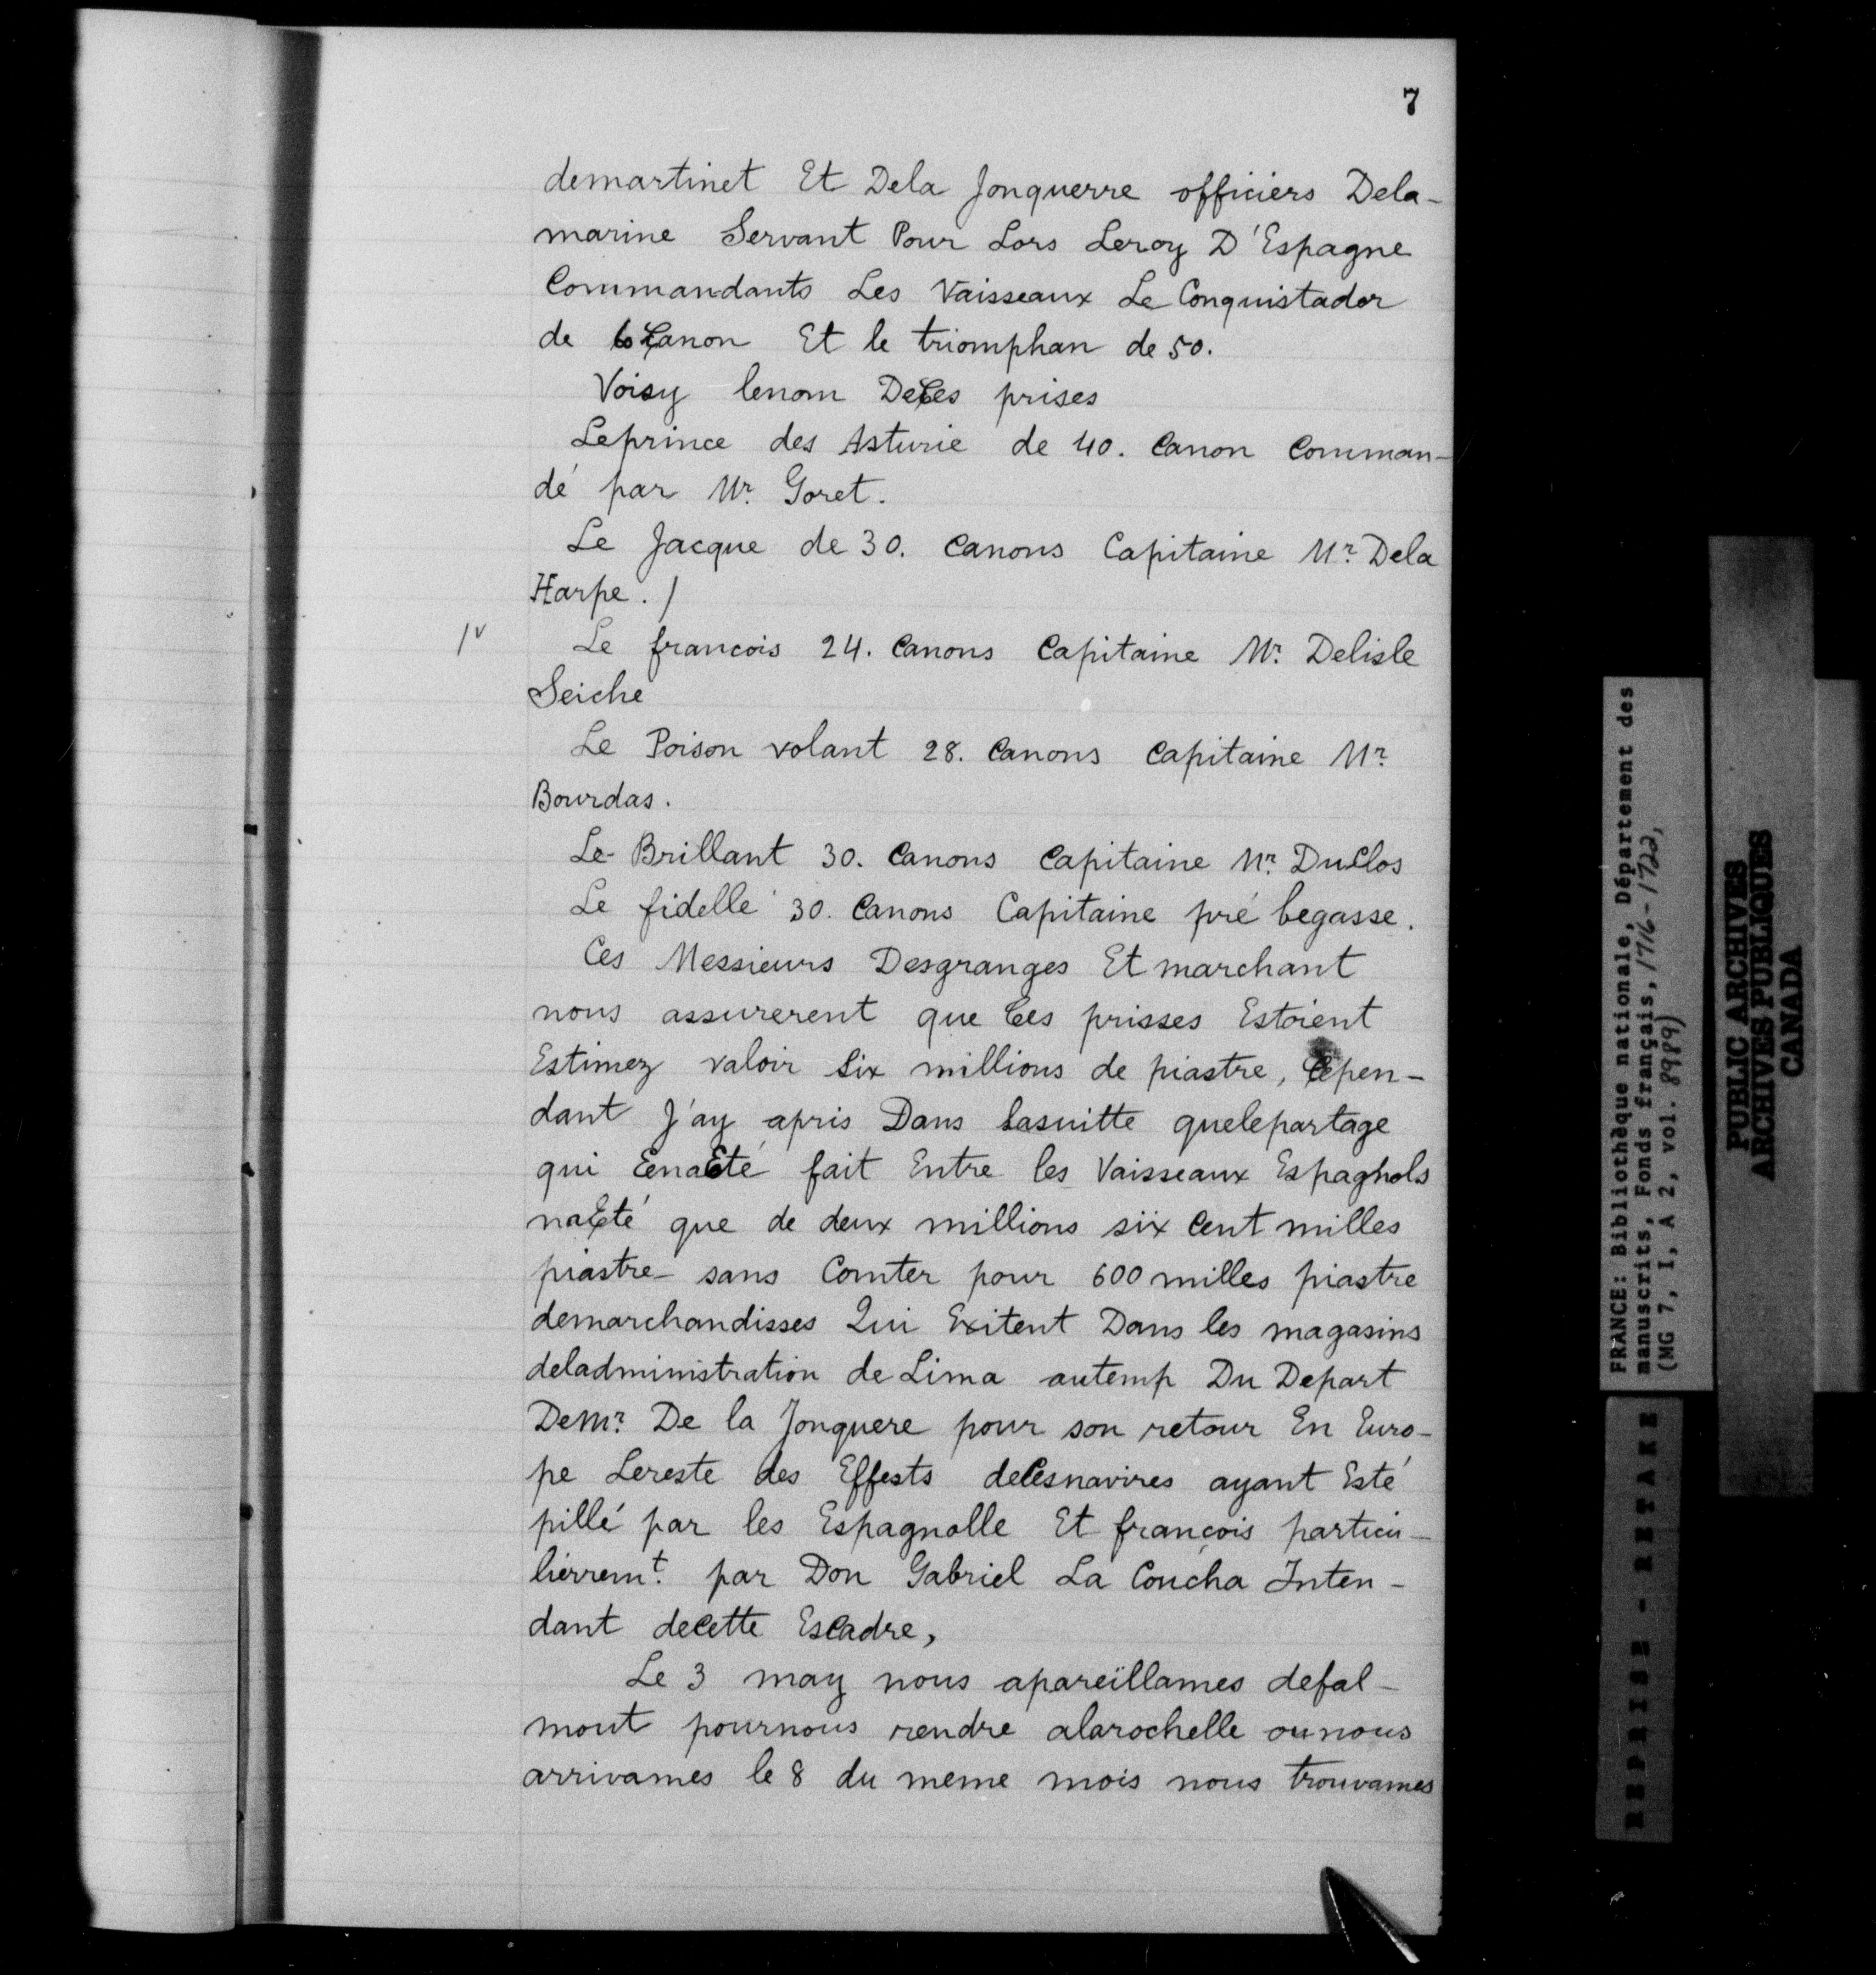 7
demartinet Et Dela Jonquerre officiers Dela-
marine Servant Pour Lors Leroy D'Espagne
Commandants Les Vaisseaux Le Conquistador
de Canon Et le triomphan de 50.
Voisy lenom DeCes prises
Leprince des Asturie de 40. Canon Comman-
dé par Mr. Goret.
Le Jacque de 30. Canons Capitaine Mr. Dela
Harpe. /
1v Le francois 24. Canons Capitaine Mr. Delisle
Seiche
Le Poison volant 28. Canons Capitaine Mr.
Bourdas.
Le Brillant 30. Canons Capitaine Mr. DuClos
Le fidelle 30. Canons Capitaine pré begasse.
Ces Messieurs Desgranges Et marchant
nous assurerent que Ces prisses Estoient
Estimez valoir Six millions de piastre, Cepen-
dant J'ay apris Dans Lasuitte quelepartage
qui EenaEté fait Entre les Vaisseaux Espagnols
naEté que de deux millions six Cent milles
piastre sans Comter pour 600 milles piastre
demarchandisses Qui Exitent Dans les magasins
deladministration de Lima autemp Du Depart
DeMr. De la Jonquere pour son retour En Euro-
pe Lereste des Effests deCesnavires ayant Esté
pillé par les Espagnolle Et françois particu-
lierremt. par Don Gabriel La Concha Inten-
dant deCette EsCadre,
Le 3 may nous apareïllames defal-
mout pournous rendre alarochelle ounous
arrivames le 8 du meme mois nous trouvames
FRANCE: Bibliothèque nationale, Département des
manuscrits, Fonds français, 1716-1722,
(MG 7, I, A 2, vol. 8989)
PUBLIC ARCHIVES
ARCHIVES PUBLIQUES
CANADA
REPRISE - RETAKE